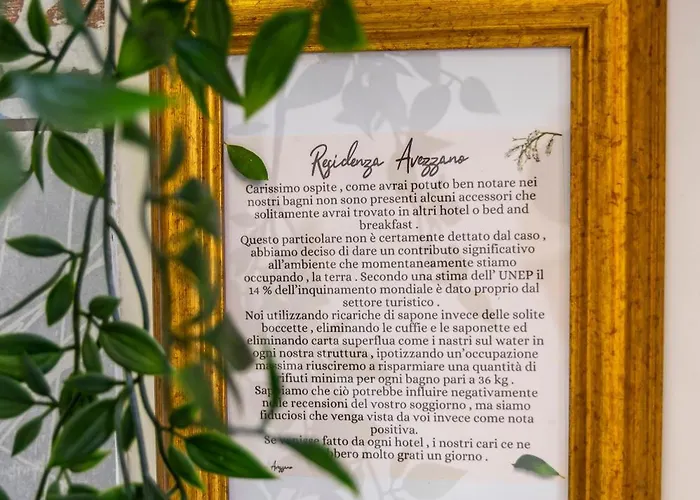 Residenza Avezzano
Carissimo ospite , come avrai potuto ben notare nei
nostri bagni non sono presenti alcuni accessori che
solitamente avrai trovato in altri hotel o bed and
breakfast .
Questo particolare non è certamente dettato dal caso ,
abbiamo deciso di dare un contributo significativo
all'ambiente che momentaneamente stiamo
occupando , la terra . Secondo una stima dell' UNEP il
14 % dell'inquinamento mondiale è dato proprio dal
settore turistico .
Noi utilizzando ricariche di sapone invece delle solite
boccette , eliminando le cuffie e le saponette ed
eliminando carta superflua come i nastri sul water in
ogni nostra struttura , ipotizzando un'occupazione
massima riusciremo a risparmiare una quantità di
rifiuti minima per ogni bagno pari a 36 kg .
Sappiamo che ciò potrebbe influire negativamente
nelle recensioni del vostro soggiorno , ma siamo
fiduciosi che venga vista da voi invece come nota
positiva.
Se fatto da ogni hotel , i nostri cari ce ne
molto grati un giorno .
Avezzano